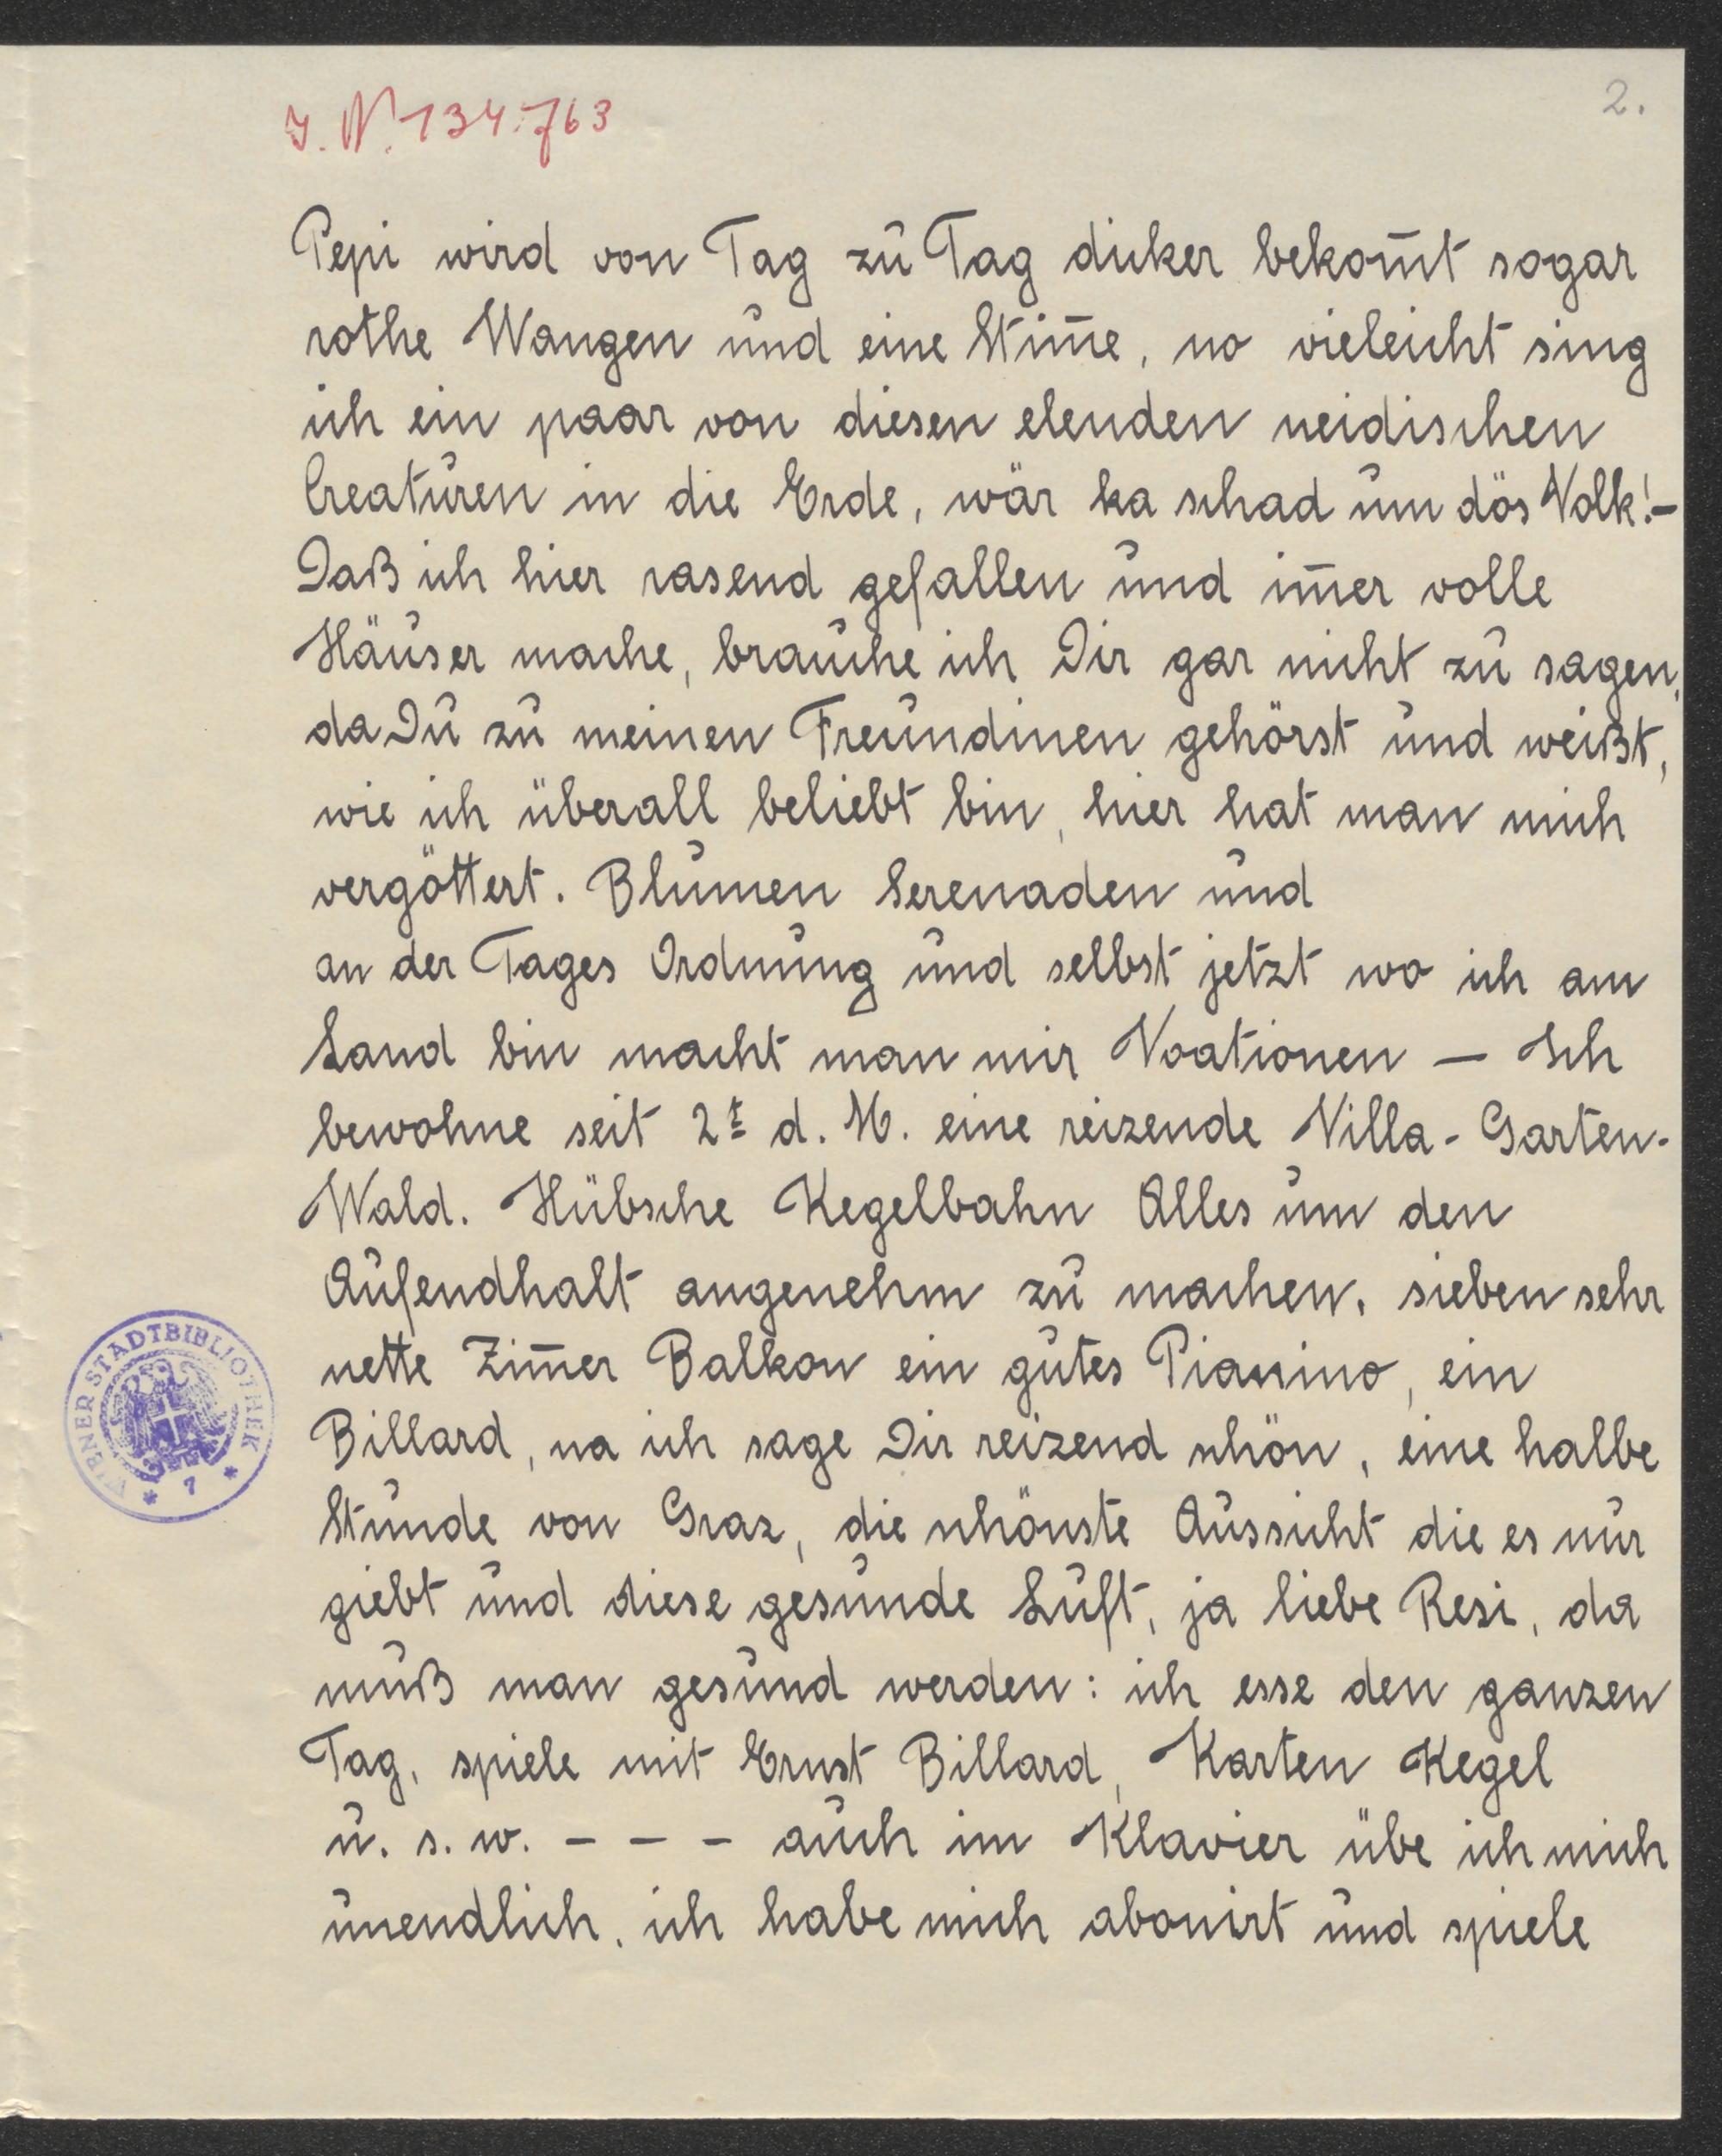 J. N. 134.763
2.
Pepi wird von Tag zu Tag dicker bekom̄t sogar
rothe Wangen und eine Stim̄e, no vieleicht sing
ich ein paar von diesen elenden neidischen
Creaturen in die Erde, wär ka schad um dös Volk!–
Daß ich hier rasend gefallen und im̄er volle
Häuser mache, brauche ich Dir gar nicht zu sagen,
da Du zu meinen Freundinen gehörst und weißt,
wie ich überall beliebt bin, hier hat man mich
vergöttert. Blumen Serenaden und
an der Tages Ordnung und selbst jetzt wo ich am
Land bin macht man mir Voationen — Ich
bewohne seit 2t d. M. eine reizende Villa - Garten-
Wald. Hübsche Kegelbahn Alles um den
Aufendhalt angenehm zu machen, sieben sehr
nette Zim̄er Balkon ein gutes Pianino, ein
Billard, na ich sage Dir reizend schön, eine halbe
Stunde von Graz, die schönste Aussicht die es nur
giebt und diese gesunde Luft, ja liebe Resi, da
muß man gesund werden: ich esse den ganzen
Tag, spiele mit Ernst Billard, Karten Kegel
u. s. w. – – – auch im Klavier übe ich mich
unendlich, ich habe mich abonirt und spiele
WIENER STADTBIBLIOTHEK
* 7 *